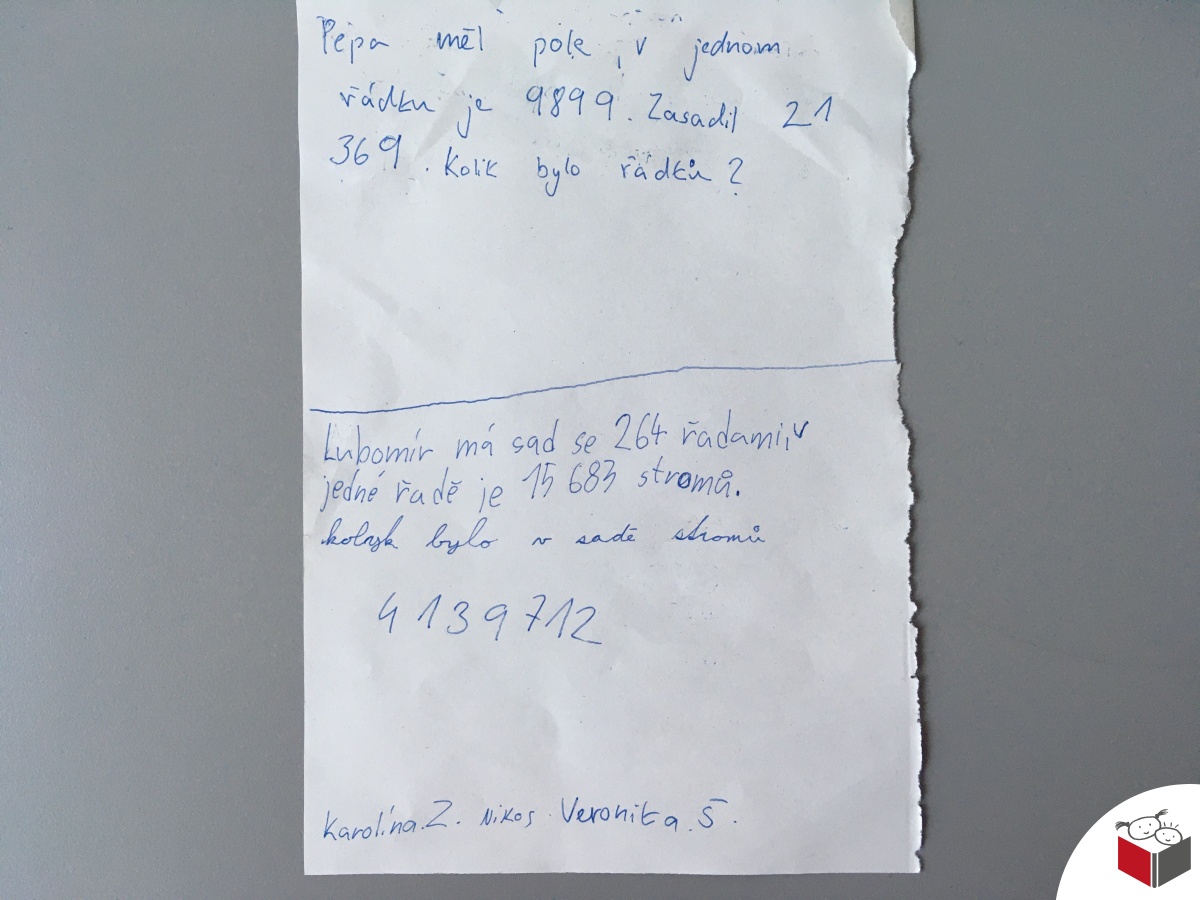 Pepa měl pole, v jednom
řádku je 9899. Zasadil 21
369. Kolik bylo řádků?
Lubomír má sad se 264 řadami, v
jedné řadě je 15 683 stromů.
kolyk bylo v sadě stromů
4139712
Karolína. Z. Nikos. Veronika. Š.